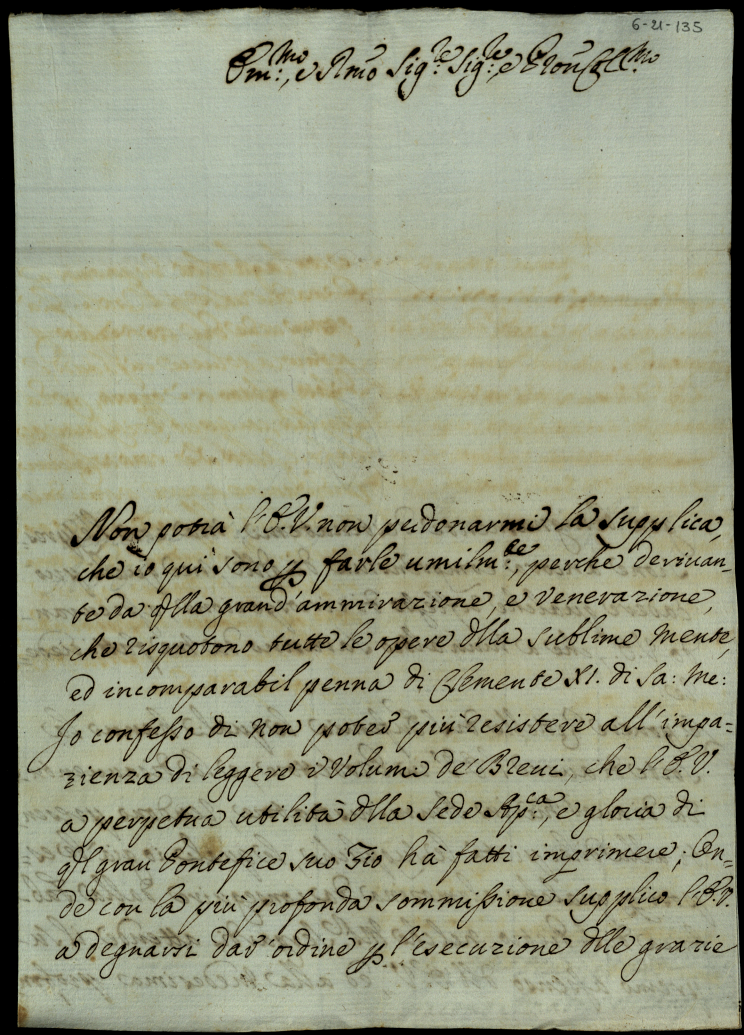 6-21-135
Em:mo, e Rmo Sig:re Sig:re, e Pron Coll:mo
Non potrà l'E.V. non perdonarmi la supplica,
che io qui sono p farle umilm:te, perchè derivan-
te da qlla grand'ammirazione, e venerazione,
che risquotono tutte le opere dlla sublime mente,
ed incomparabil penna di Clemente XI. di Sa: Me:
Io confesso di non poter più resistere all'impa=
zienza di leggere i Volumi de' Brevi, che l'E.V.
a perpetua utilità dlla Sede Ap:ca, e gloria di
ql gran Pontefice suo Zio hà fatti imprimere; On=
de con la più profonda sommissione supplico l'E.V.
a degnarsi dar'ordine p l'esecuzione dlle grazie